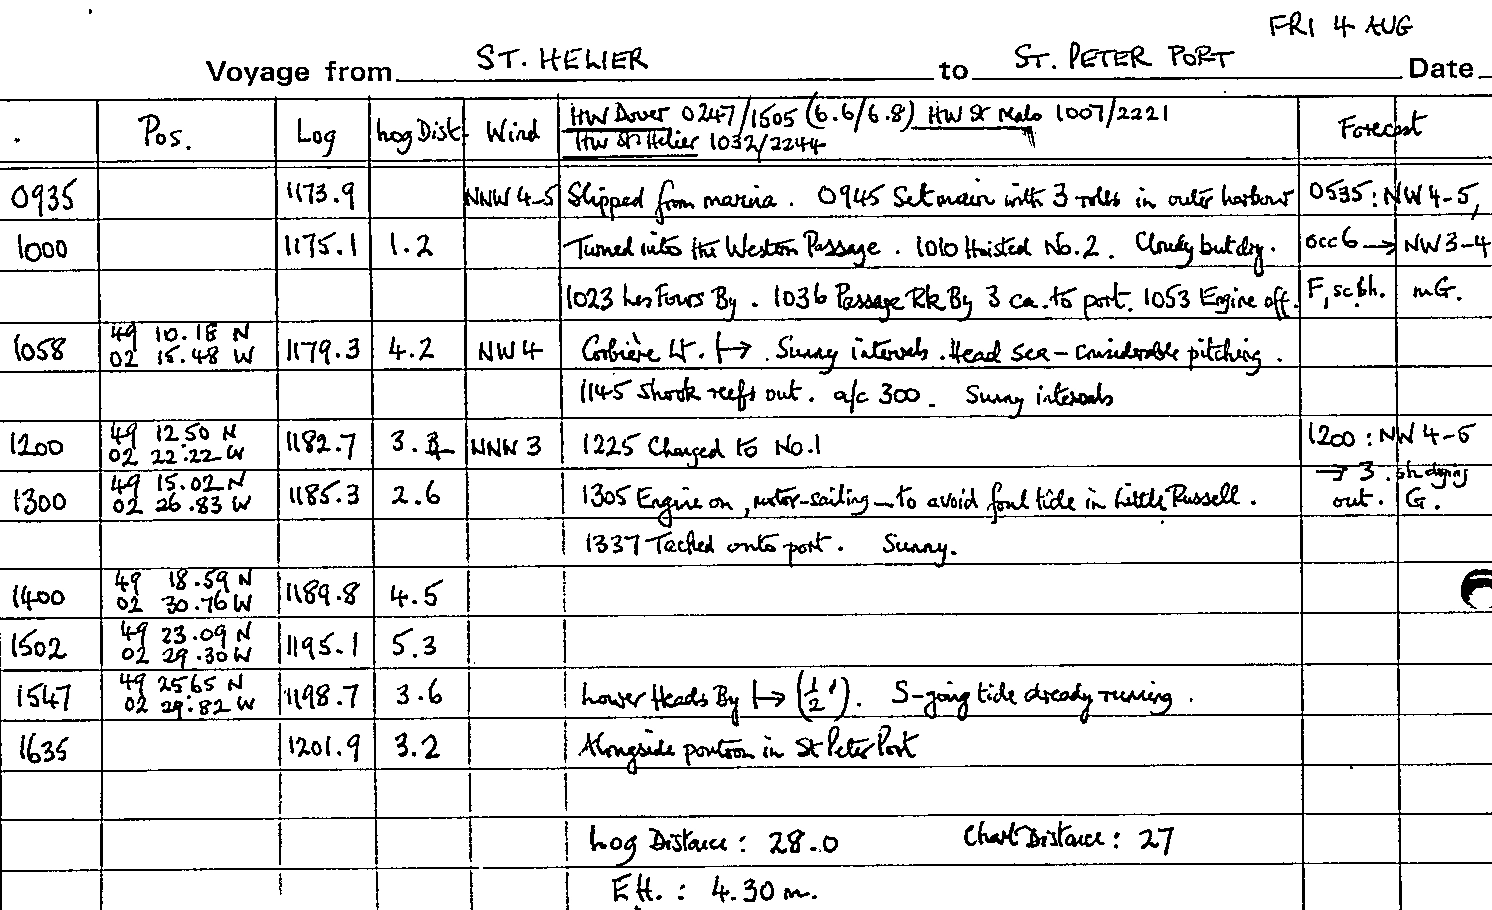 FRI 4 AUG
Voyage from ST. HELIER to ST. PETER PORT Date
Pos. Log Log Dist. Wind HW Dover 0247/1505 (6.6/6.8) HW St Malo 1007/2221 Forecast
HW St Helier 1032/2244
0935 1173.9 NNW 4-5 Slipped from marina. 0945 Set main with 3 rolls in outer harbour 0535: NW 4-5,
1000 1175.1 1.2 Turned into the Western Passage. 1010 Hoisted No.2. Cloudy but dry. occ 6 → NW 3-4
1023 Les Fours By. 1036 Passage Rk By 3 ca. to port. 1053 Engine off. F, sc. sh. mG.
1058 49 10.18 N 1179.3 4.2 NW 4 Corbière Lt. ↦. Sunny intervals. Head sea - considerable pitching.
02 15.48 W
1145 Shook reefs out. a/c 300. Sunny intervals
1200 49 12.50 N 1182.7 3.4 NNW 3 1225 Changed to No.1 1200: NW 4-5
02 22.22 W → 3. sh. dying
1300 49 15.02 N 1185.3 2.6 1305 Engine on, motor-sailing - to avoid foul tide in Little Russell. out. G.
02 26.83 W
1337 Tacked onto port. Sunny.
1400 49 18.59 N 1189.8 4.5
02 30.76 W
1502 49 23.09 N 1195.1 5.3
02 29.30 W
1547 49 25.65 N 1198.7 3.6 Lower Heads By ↦ (½'). S-going tide already running.
02 29.82 W
1635 1201.9 3.2 Alongside pontoon in St Peter Port
Log Distance: 28.0 Chart Distance: 27
EH.: 4.30 m.